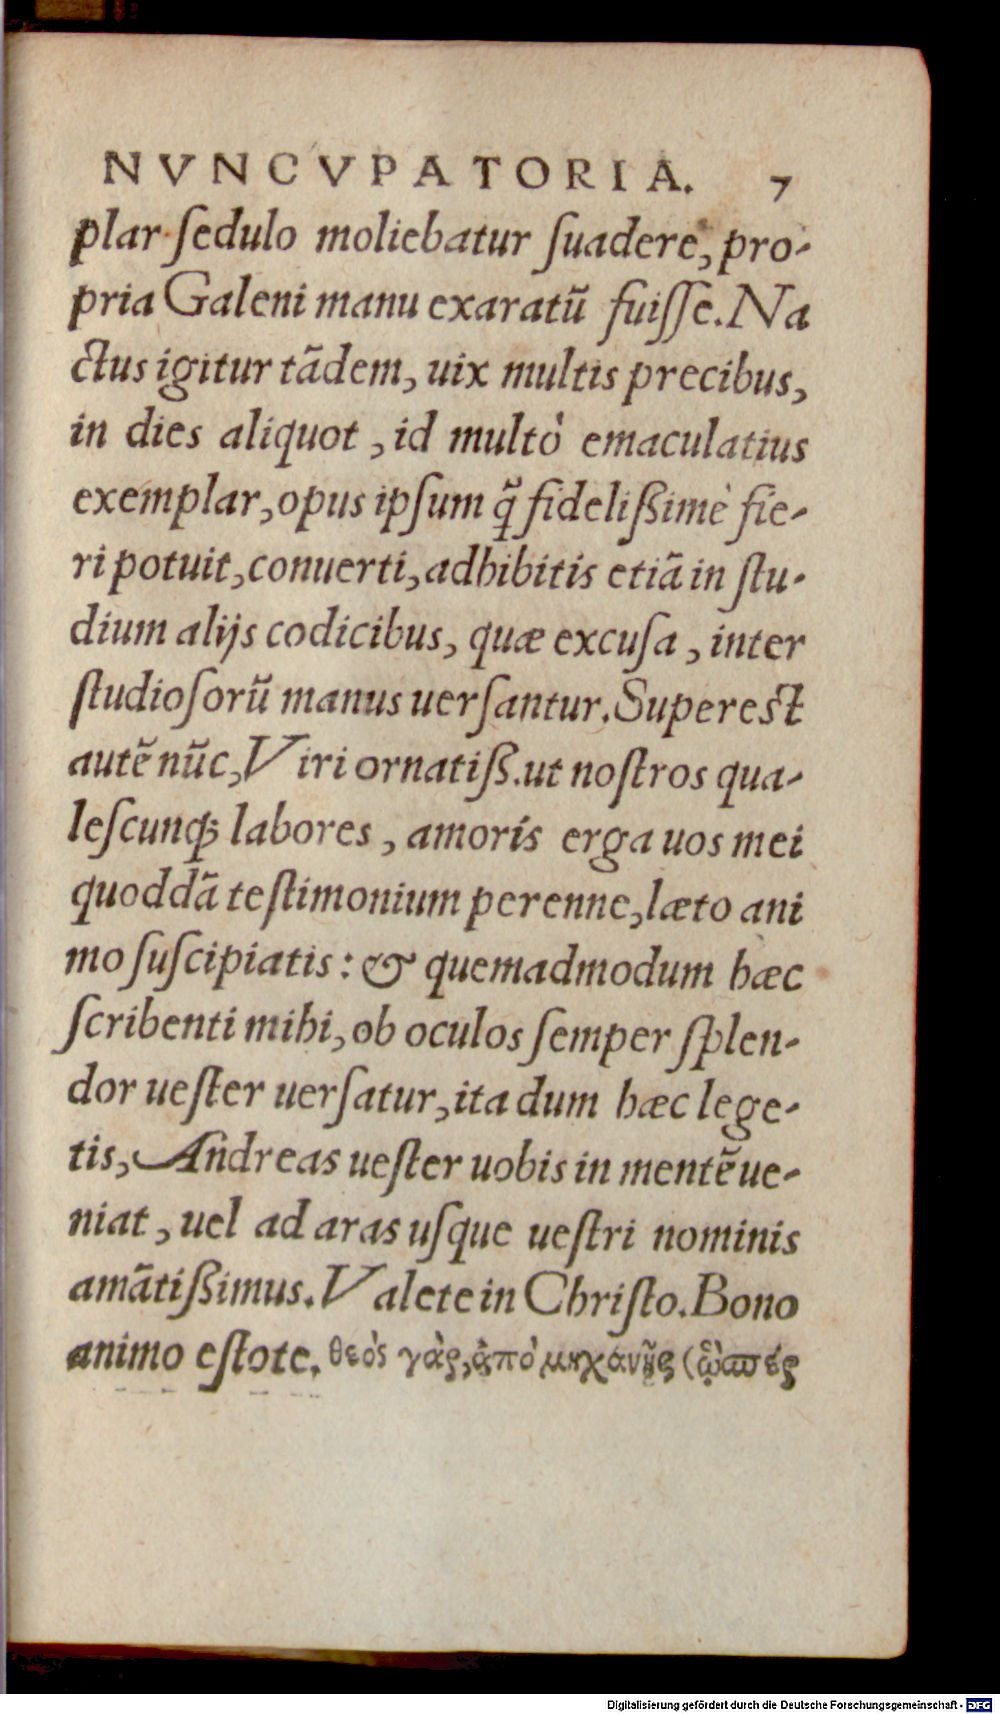 NVNCVPATORIA. 7
plar ſedulo moliebatur ſuadere, pro-
pria Galeni manu exaratũ fuiſſe. Na
ctus igitur tãdem, uix multis precibus,
in dies aliquot, id multò emaculatius
exemplar, opus ipſum q̃ fidelißimè fie-
ri potuit, conuerti, adhibitis etiã in ſtu-
dium alijs codicibus, quæ excuſa, inter
ſtudioſorũ manus uerſantur. Supereſt
autẽ nũc, Viri ornatiß. ut noſtros qua-
leſcunq; labores, amorís erga uos mei
quoddã teſtimonium perenne, læto ani
mo ſuſcipiatis: & quemadmodum hæc
ſcribenti mihi, ob oculos ſemper ſplen-
dor ueſter uerſatur, ita dum hæc lege-
tis, Andreas ueſter uobis in mentẽ ue-
niat, uel ad aras uſque ueſtri nominis
amãtißimus. Valete in Chriſto. Bono
animo eſtote. θεὸς γὰρ, ἀπὸ μηχανῆς (ὥσπερ
Digitalisierung gefördert durch die Deutsche Forschungsgemeinschaft - DFG